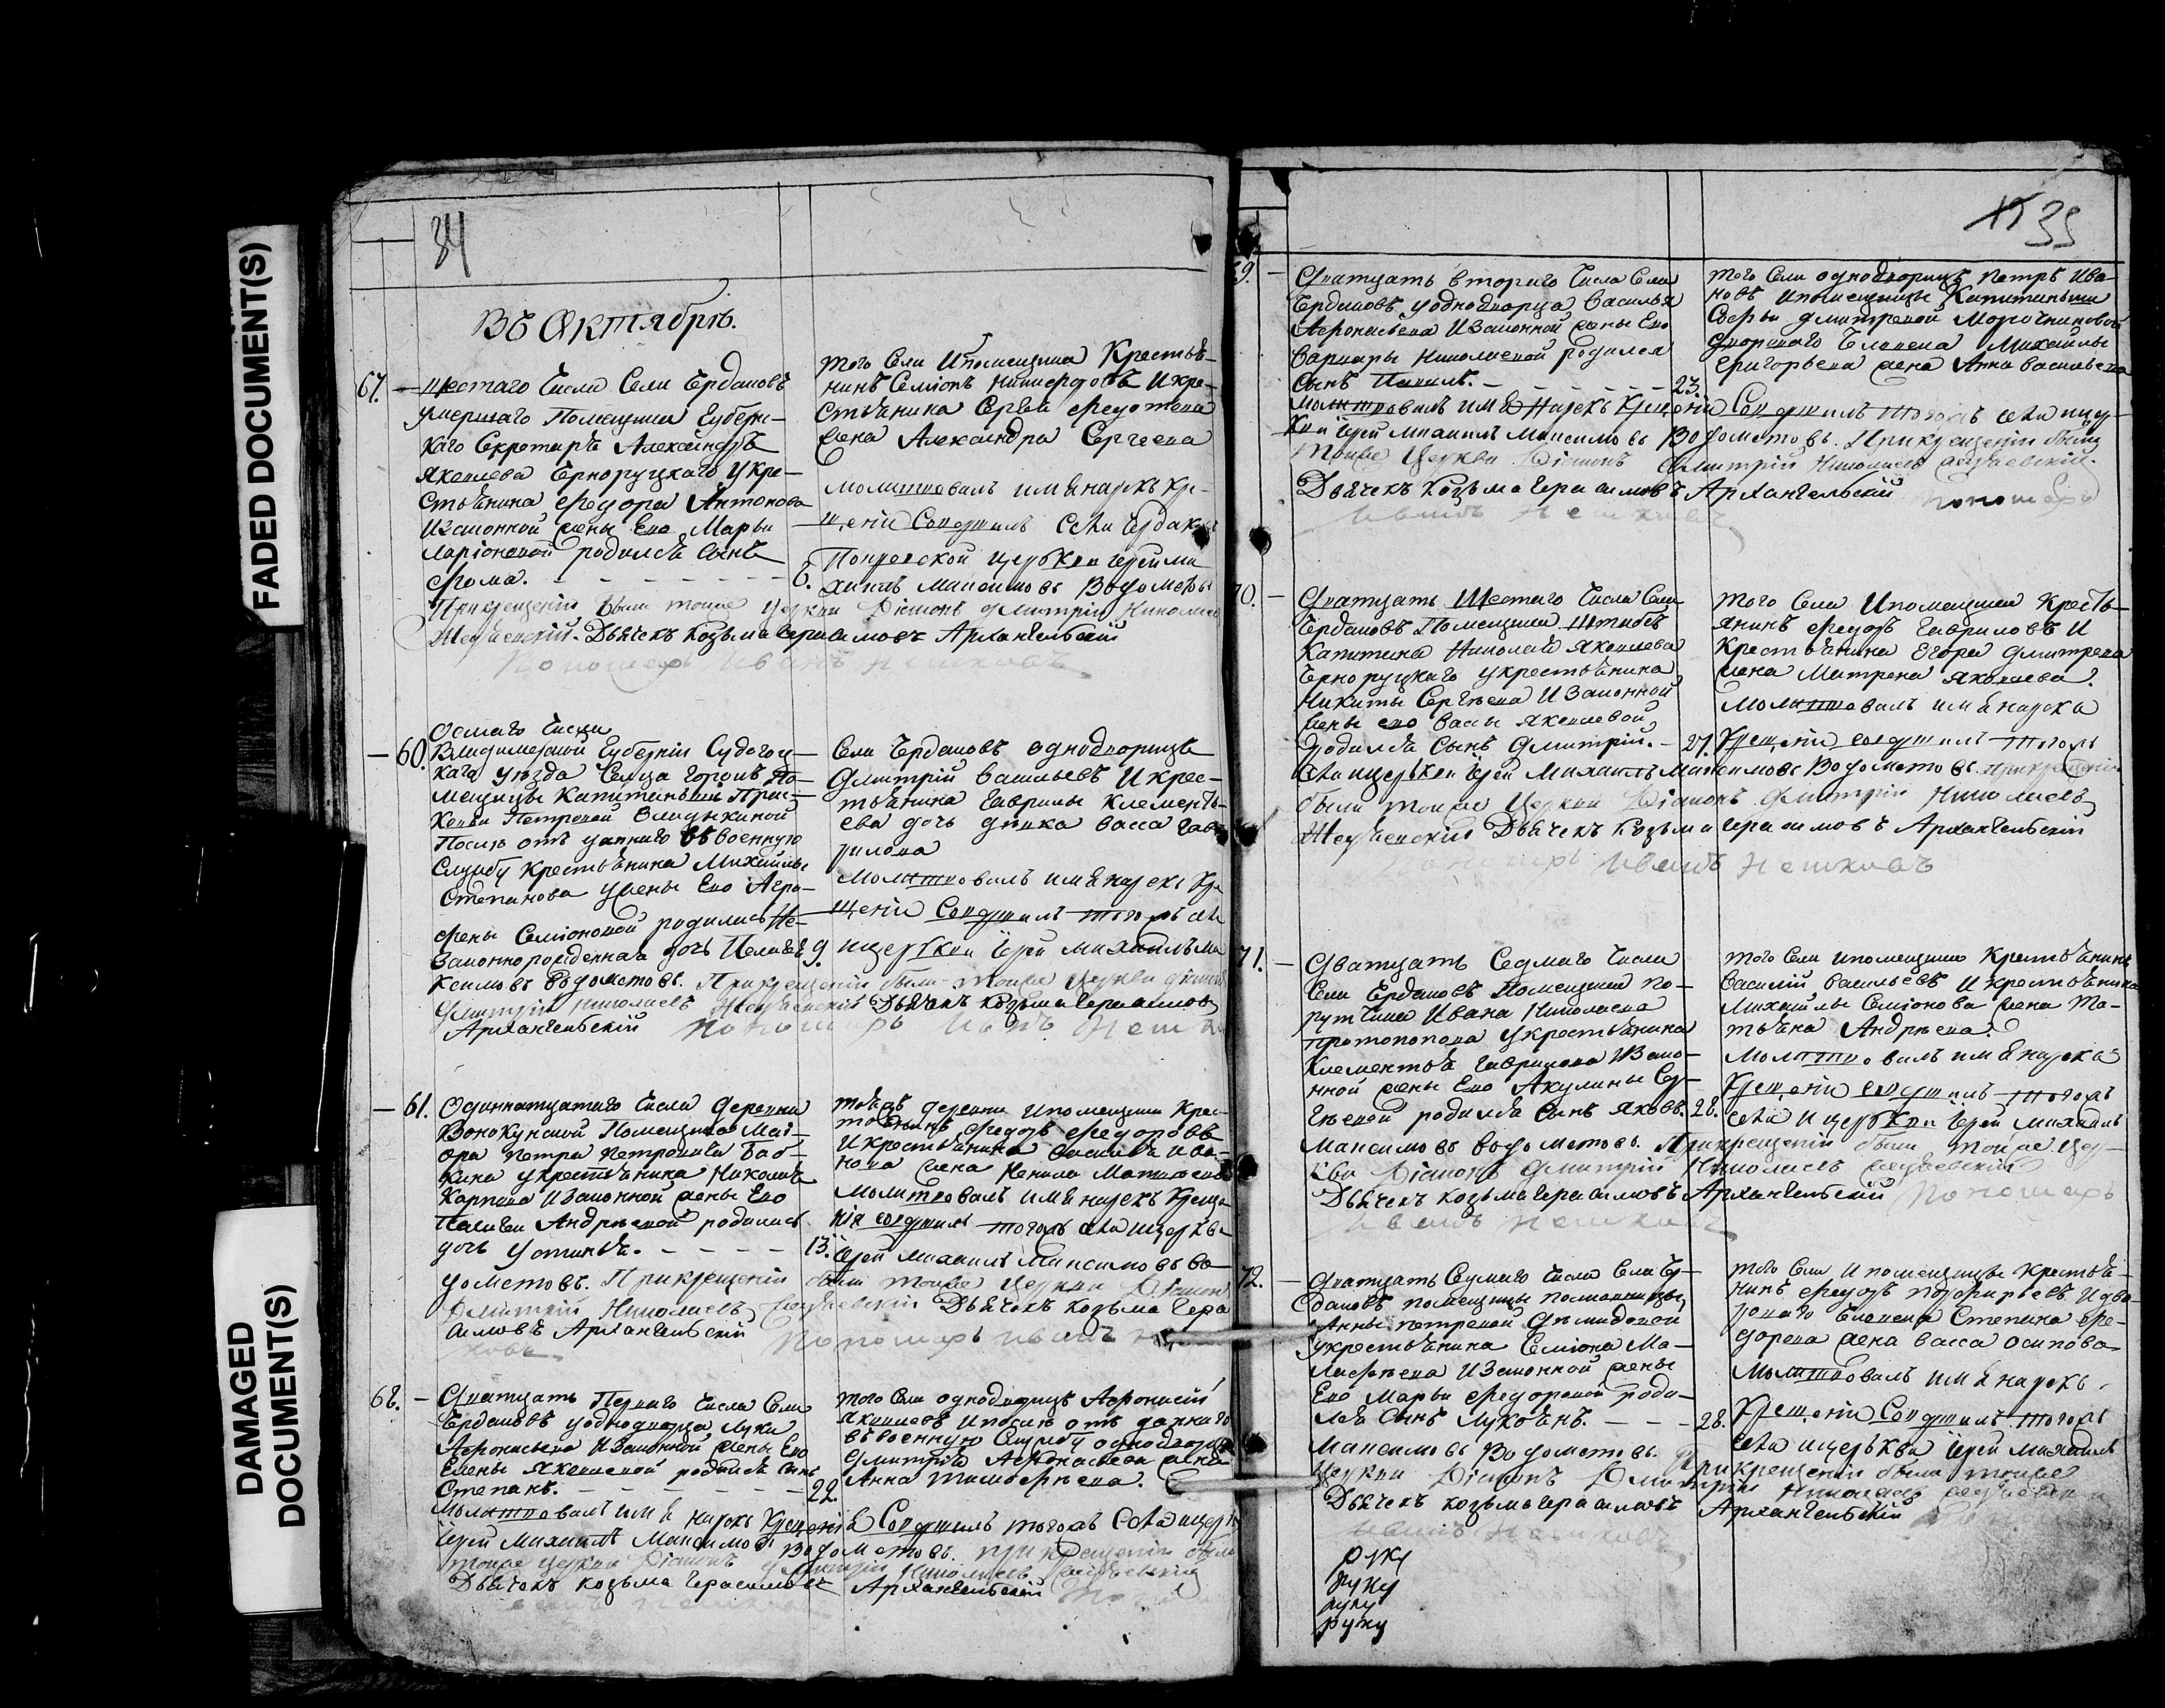 FADED DOCUMENT(S)
DAMAGED
DOCUMENT(S)
34
Въ Октябрѣ.
67.
Шестаго Числа Села Ердановъ
умершаго Помещика Губерн-
каго Секретаръ Александръ
Яковлева Черноруцкаго Укре-
стьянина Федора Антонова
Изаконной жены Его Марьи
Ларіоновой родился Сынъ
Фома. - - - - - - - 8.
того Села Ипомещика Крестья-
нинъ Семіонъ Никифоровъ Икре-
стьянина Сергѣя Федотова
жена Александра Сергѣева
молитвовалъ имя нарекъ кре-
щеніи Совершилъ села Ердановъ
Покровской церькви Іерей Ми-
хаилъ Максимовъ Водометовъ
Прикрещеніи были тойже церкви Діаконъ Дмитрій Николаевъ
Дьячекъ Козьма Герасимовъ Архангельскій
Пономарь Иванъ Нешковъ
60.
Осмаго Числа
Владимерской Губерніи Судогод-
каго уѣзда Сельца Горокъ По-
мещицы Капитаньши Прас-
ковьи Петровой Владыкиной
Послѣ отъ даннаго въ военную
Службу Крестьянина Михайлы
Степанова Ужены Его Агра-
фены Семіоновой родилась Не-
законнорожденная дочь Пелагѣя 9.
Села Ердановъ однодворецъ
Дмитрій Васильевъ Икрес-
тьянина Гаврилы Клементь-
ева дочь дѣвка Васса Гав-
рилова
Молитвовалъ имя нарекъ Кре
щеніи Совершилъ тогожъ села
ицерькви Іерей Михаилъ Ма
ксимовъ Водометовъ. Прикрещеніи были тойже церкви діаконъ
Дмитрій Николаевъ Дьячекъ Козьма Герасимовъ
Архангельскій Пономарь Иванъ Нешковъ
61.
Одиннатцатаго Числа деревни
Волокунской Помещика Маі-
ора Петра Петровича Баб-
кина Укрестьянина Николая
Карпова Изаконной жены Его
Палагеи Андрѣевой родилась
дочь Устинья. - - - - 13.
тойжъ деревни Ипомещика Крес-
тьянинъ Федоръ Федоровъ
Икрестьянина Василья Ива-
нова жена Ненила Матвѣева
Молитвовалъ имя нарекъ Креще
ніи совершилъ тогожъ села ицеркви
Іерей Михаилъ Максимовъ Во-
дометовъ. Прикрещеніи были тойже церкви Діаконъ
Дмитрій Николаевъ Дьячекъ Козьма Гера
симовъ Архангельскій Пономарь Иванъ Неш
ковъ
68.
Дватцать Перваго Числа Села
Ердановъ Уоднодворца Луки
Афонасьева Изаконной жены Его
Елены Яковлевой родился Сынъ
Степанъ. - - - - - - - 22.
того Села однодворецъ Афонасій
Яковлевъ Ипослѣ отъ даннаго
въвоенную Службу однодворца
Дмитрія Афонасьева жена
Анна Тимофѣева.
Молитвовалъ имя нарекъ Крещеніи Совершилъ тогожъ Села ицерькви
Іерей Михаилъ Максимовъ Водометовъ. при крещеніи были
тойже церкви Діаконъ Дмитрій Николаевъ
Дьячекъ Козьма Герасимовъ Архангельскій
35
69.
Дватцать втораго Числа Села
Ердановъ уоднодворца Василья
Афонасьева Изаконной жены Его
Варвары Николаевой родился
Сынъ Павилъ. - - - - - 23.
того Села однодворецъ Петръ Ива-
новъ Ипомещицы Капитаньши
Софьи Дмитревой Морочниковой
дворового Человека Михайлы
Григорьева жена Анна Васильева
Молитвовалъ имя Нарекъ Крещеніи Совершилъ тогожъ села ицер-
кви Іерей Михаилъ Максимовъ Водометовъ. Прикрещеніи были
тойже Церкви Діаконъ Дмитрій Николаевъ
Дьячекъ Козьма Герасимовъ Архангельскій Пономарь
Иванъ Нешковъ
70.
Дватцать Шестаго Числа Села
Ердановъ Помещика Штабсъ
Капитана Николая Яковлева
Черноруцкаго Укрестьянина
Никиты Сергѣева Изаконной
жены его Васы Яковлевой
родился Сынъ Дмитрій. - 27.
того Села Ипомещика Кресть-
янинъ Федоръ Гавриловъ И
Крестьянина Егора Дмитрева
жена Матрена Яковлева.
Молитвовалъ имя нарекъ
Крещеніи совершилъ тогожъ
села ицерькви Іерей Михаилъ Максимовъ Водометовъ. прикрещеніи
были тойже Церкви Діаконъ Дмитрій Николаевъ
Дьячекъ Козьма Герасимовъ Архангельскій
Пономарь Иванъ Нешковъ
71.
Дватцать Седмаго Числа
Села Ердановъ Помещика По-
рутчика Ивана Николаева
Протопопова Укрестьянина
Клементья Гаврилова Изако-
нной жены Его Акулины Сер-
гѣевой родился Сынъ Яковъ. 28.
того Села ипомещика Крестьянинъ
Василій Васильевъ Икрестьянина
Михайлы Семіонова жена Та-
тьяна Андрѣева.
Молитвовалъ имя нарекъ
Крещеніи совершилъ тогожъ
села Ицерькви Іерей Михаилъ
Максимовъ Водометовъ. Прикрещеніи были тойже цер-
кви Діаконъ Дмитрій Николаевъ
Дьячекъ Козьма Герасимовъ Архангельскій Пономарь
Иванъ Нешковъ
72.
Дватцать Седмаго Числа Села Ер-
дановъ помещицы
Анны Петровой Демидовой
укрестьянина Семіона Ма-
Изаконной жены
Его Марьи Федоровой роди-
лся Сынъ Лукьянъ. - - - 28.
того Села Ипомещицы Крестья-
нинъ Федоръ Порфирьевъ Идво-
роваго Человека Степана Фе-
дорова жена Васса Осипова
Молитвовалъ имя нарекъ
Крещеніи Совершилъ тогожъ
села ицерькви Іерей Михаилъ
Максимовъ Водометовъ. При крещеніи были тойже
Церкви Діаконъ Дмитрій Николаевъ
Дьячекъ Козьма Герасимовъ Архангельскій
Иванъ Нешковъ
руку
руку
руку
руку